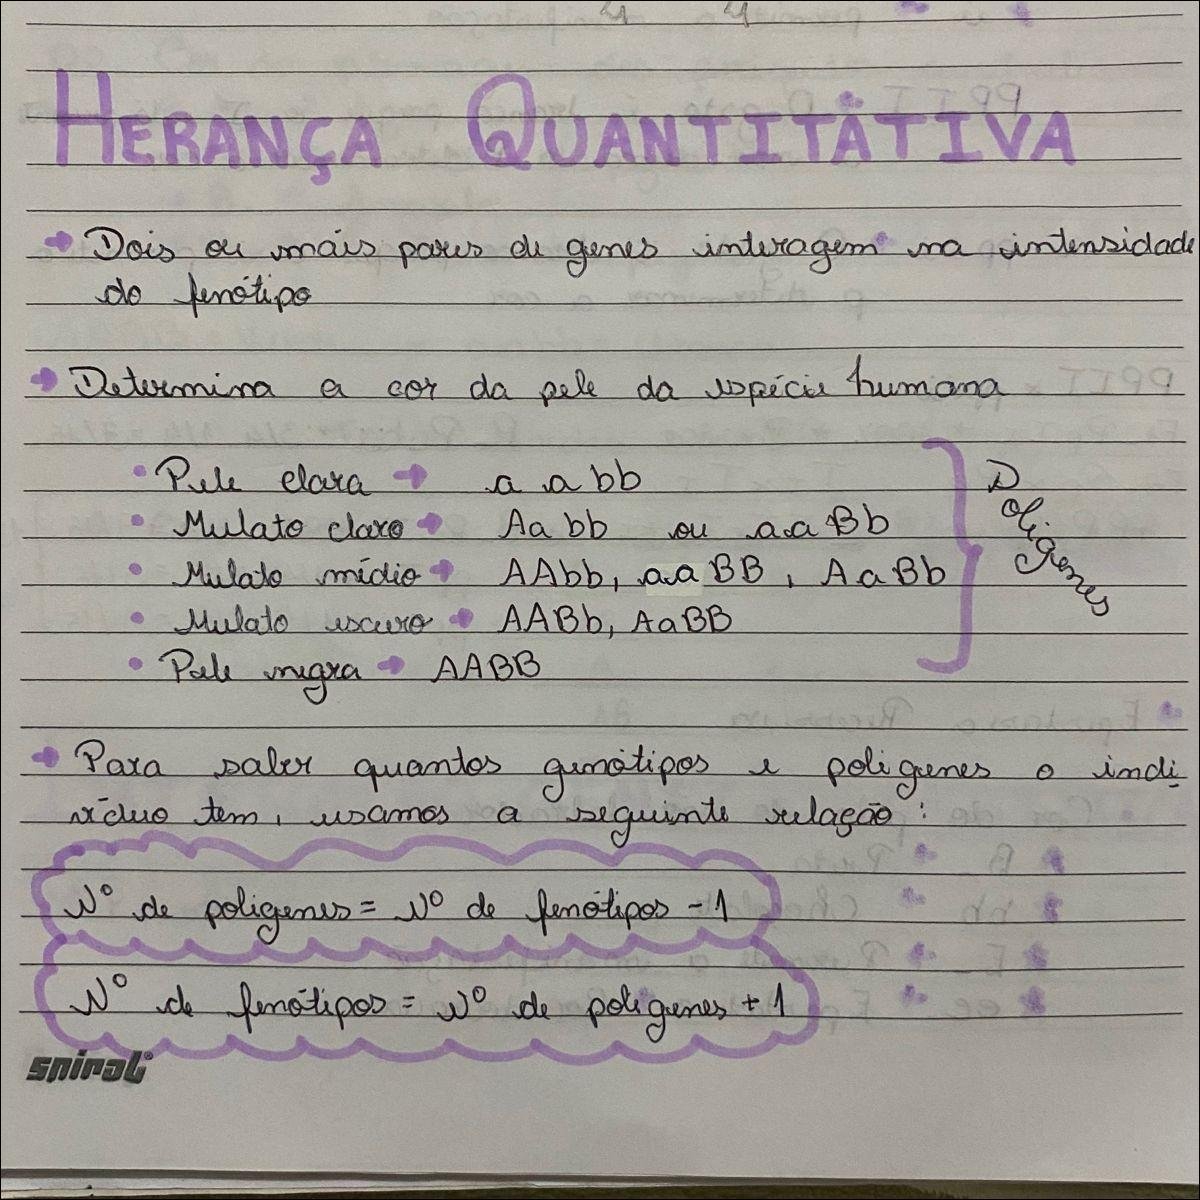 HERANÇA QUANTITATIVA
Dois ou mais pares de genes interagem na intensidade
do fenótipo
Determina a cor da pele da espécie humana
Pele clara → aabb
Mulato claro → Aabb ou aaBb
Mulato médio → AAbb, aaBB, AaBb
Mulato escuro → AABb, AaBB
Pele negra → AABB
Poligenes
Para saber quantos genótipos e poligenes o indi
víduo tem, usamos a seguinte relação:
Nº de poligenes = Nº de fenótipos - 1
Nº de fenótipos = Nº de poligenes + 1
spiral®